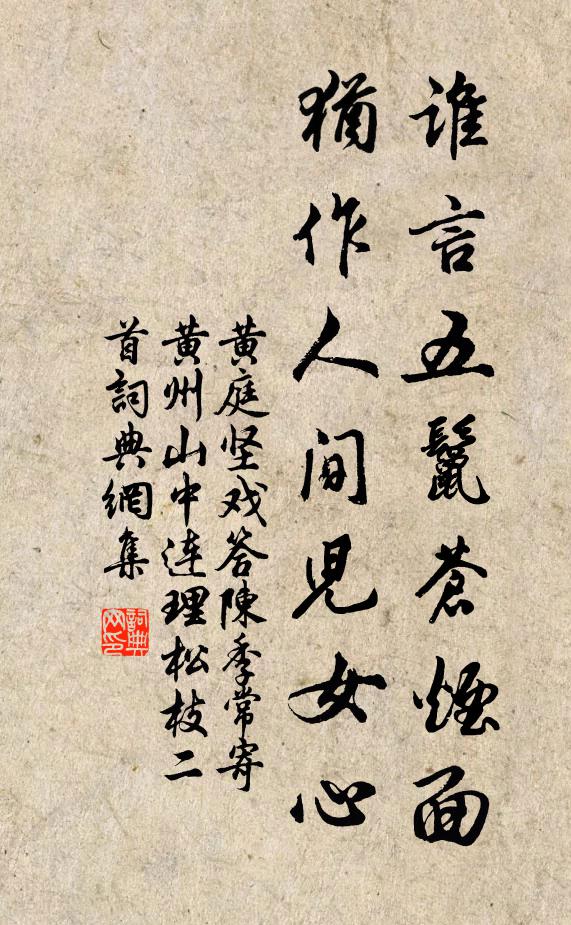 谁言五鬣蒼煙面
猶作人間児女心
黄庭坚戏答陳季常寄
黄州山中连理松枝二
首詞典網集
詞典网印